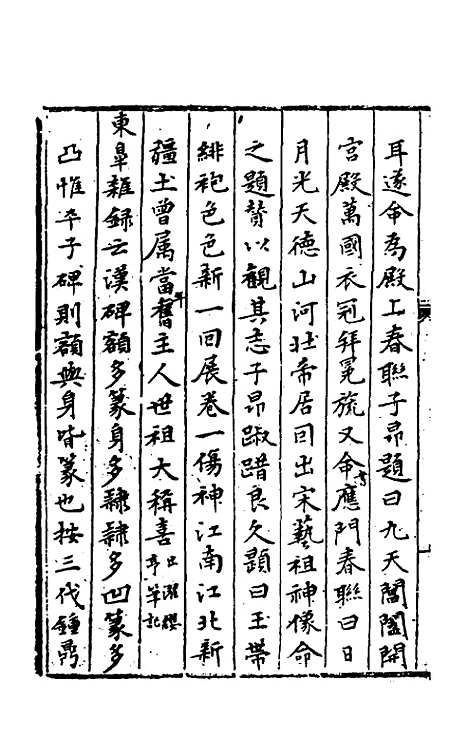 耳遂命爲殿上春聯子昂題曰九天閶闔開
宮殿萬國衣冠拜冕旒又命書應門春聯曰日
月光天德山河壯帝居回出宋藝祖神像命
之題贊以觀其志子昂踧踖良久題曰玉帶
緋袍色色新一回展卷一傷神江南江北新
疆土曾属當年舊主人世祖大稱喜
東臯雜録云漢碑額多篆身多隸隸多凹篆多
凸惟平子碑則額與身皆篆也按三代鍾鼎